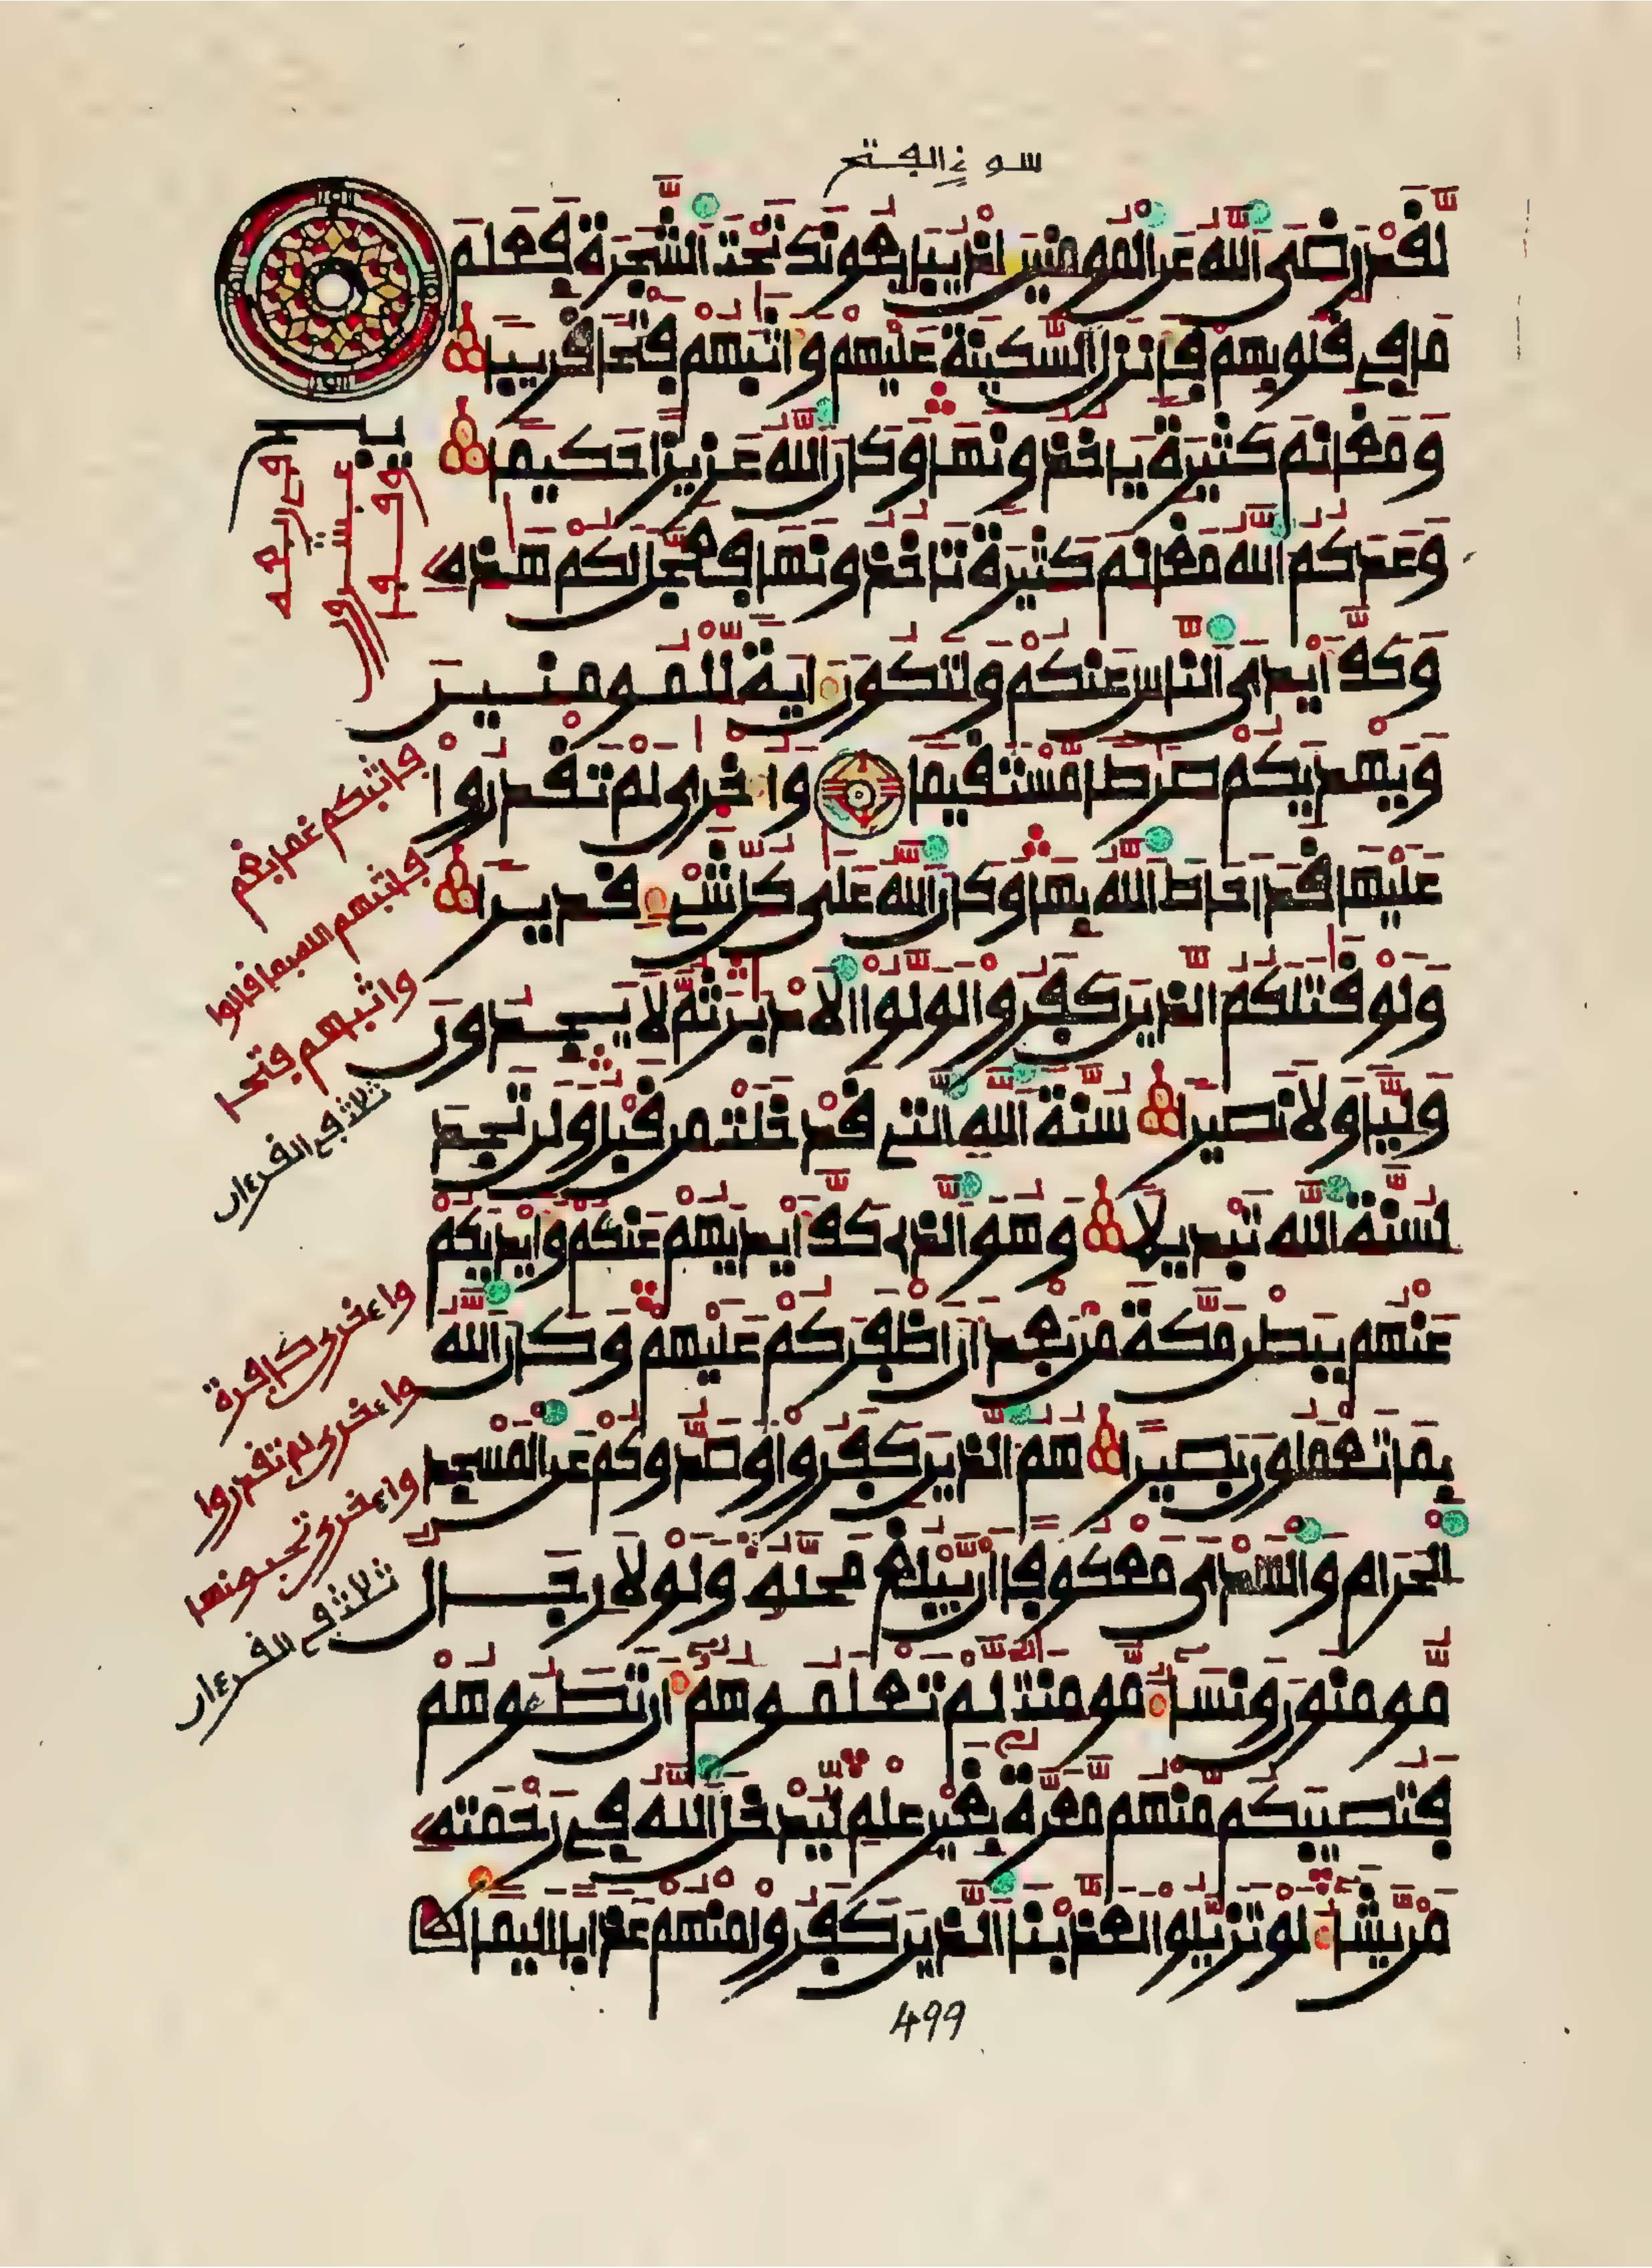 سورة الفتح
لقد رضي الله عن المومنين اذ يبايعونك تحت الشجرة فعلم
ما في قلوبهم فانزل السكينة عليهم واثبهم فتحا قريبا
ومغانم كثيرة ياخذونها وكان الله عزيزا حكيما
وعدكم الله مغانم كثيرة تاخذونها فعجل لكم هذه
وكف أيدي الناس عنكم ولتكون اية للمومنين
ويهديكم صرطا مستقيما واخرى لم تقدروا
عليها قد احاط الله بها وكان الله على كل شيء قديرا
ولو قتلكم الذين كفروا لولوا الادبر ثم لا يجدون
وليا ولا نصيرا سنة الله التي قد خلت من قبل ولن تجد
لسنة الله تبديلا وهو الذي كف أيديهم عنكم وأيديكم
عنهم ببطن مكة من بعد ان اظفركم عليهم وكان الله
بما تعملون بصيرا هم الذين كفروا وصدوكم عن المسجد
الحرام والهدي معكوفا ان يبلغ محله ولولا رجال
مومنون ونساء مومنت لم تعلموهم أن تطئوهم
فتصيبكم منهم معرة بغير علم ليدخل الله في رحمته
من يشاء لو تزيلوا لعذبنا الذين كفروا منهم عذابا اليما
فاثبكم غما بغم
فاثبهم الله بما قالوا
واثبهم فتحا
ثلاث في القرءان
واءخرى كافرة
واءخرى لم تقدروا
واءخرى تحبونها
ثلاث في القرءان
499